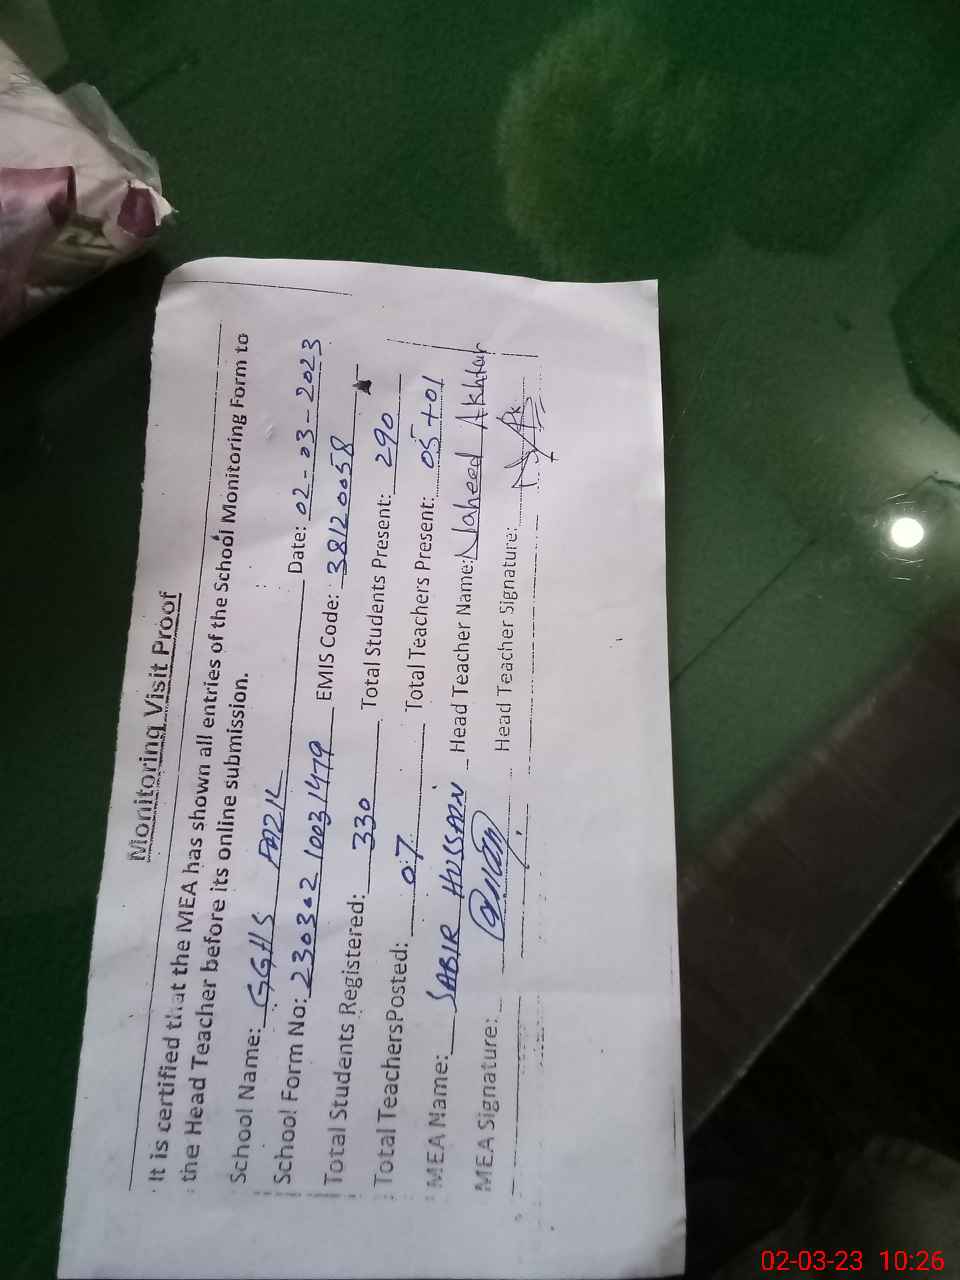 Monitoring Visit Proof
It is certified that the MEA has shown all entries of the School Monitoring Form to
the Head Teacher before its online submission.
School Name: GGHS FAZIL Date: 02-03-2023
School Form No: 230302 10031479 EMIS Code: 38120058
Total Students Registered: 330 Total Students Present: 290
Total TeachersPosted: 07 Total Teachers Present: 05+01
MEA Name: SABIR HUSSAIN Head Teacher Name: Naheed Akhtar
MEA Signature: Head Teacher Signature:
02-03-23 10:26